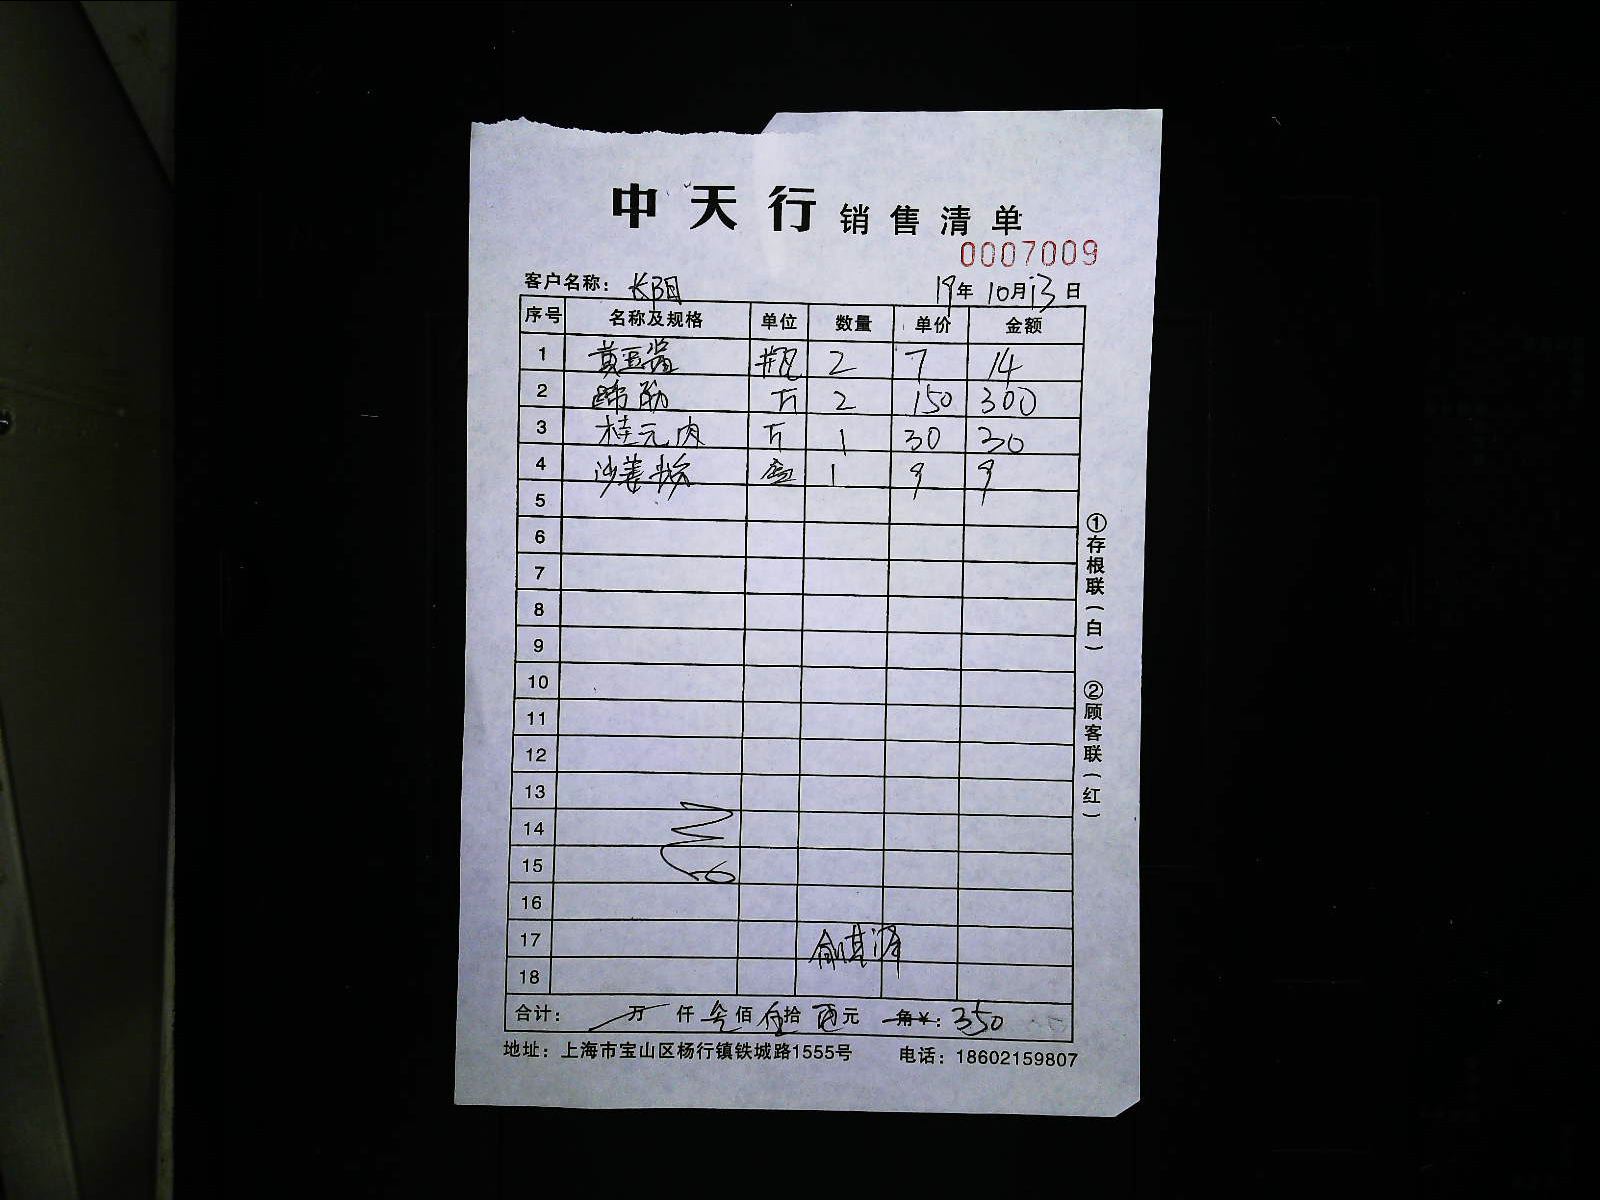 中天行 销售清单
0007009
客户名称： 长阳 19年 10月13日
序号 名称及规格 单位 数量 单价 金额
1 黄豆酱 瓶 2 7 14
2 蹄筋 斤 2 150 300
3 桂元肉 斤 1 30 30
4 沙姜粉 盒 1 9 9
5
6
7
8
9
10
11
12
13
14
15
16
17
18
合计： 万 仟 叁佰 伍拾 元 角¥： 350
地址：上海市宝山区杨行镇铁城路1555号 电话：18602159807
①存根联（白） ②顾客联（红）